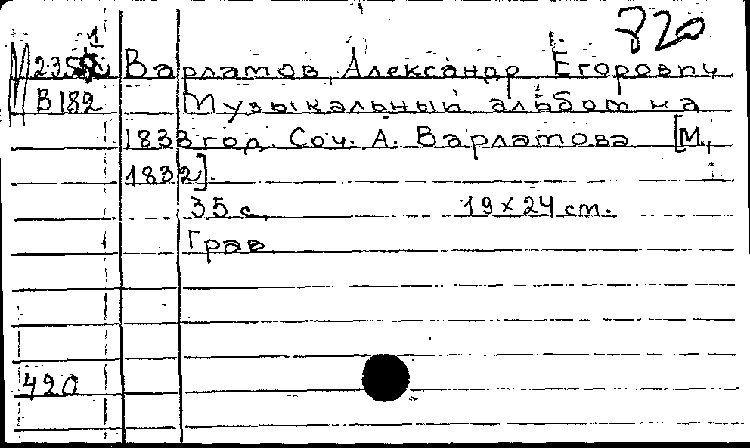 820
1
Варламов, Александр Егорович
В 182 Музыкальный альбом на
1833 год. Соч. А. Варламова [М.,
1832].
35 с. 19 × 24 cm.
Грав
420